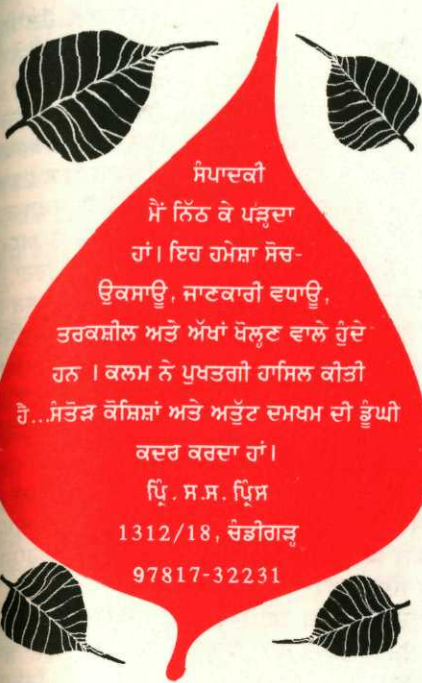 ਸੰਪਾਦਕੀ
ਮੈਂ ਨਿੱਠ ਕੇ ਪੜ੍ਹਦਾ
ਹਾਂ। ਇਹ ਹਮੇਸ਼ਾ ਸੋਚ-
ਉਕਸਾਊ, ਜਾਣਕਾਰੀ ਵਧਾਊ,
ਤਰਕਸ਼ੀਲ ਅਤੇ ਅੱਖਾਂ ਖੋਲ੍ਹਣ ਵਾਲੇ ਹੁੰਦੇ
ਹਨ । ਕਲਮ ਨੇ ਪੁਖਤਗੀ ਹਾਸਿਲ ਕੀਤੀ
ਹੈ...ਸੰਤੋੜ ਕੋਸ਼ਿਸ਼ਾਂ ਅਤੇ ਅਤੁੱਟ ਦਮਖਮ ਦੀ ਡੂੰਘੀ
ਕਦਰ ਕਰਦਾ ਹਾਂ।
ਪ੍ਰਿੰ. ਸ.ਸ. ਪ੍ਰਿੰਸ
1312/18, ਚੰਡੀਗੜ੍ਹ
97817-32231